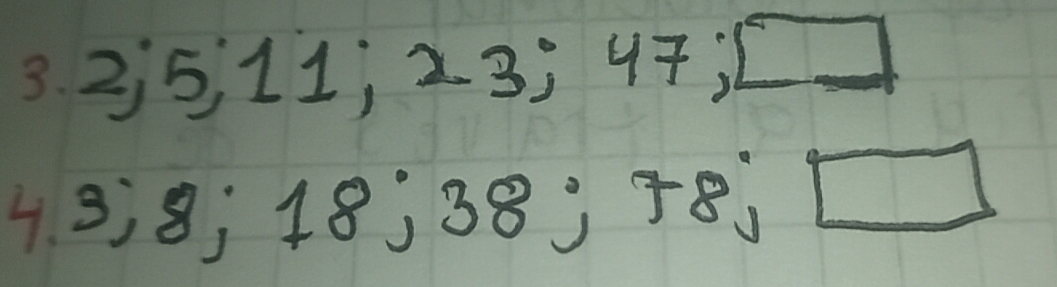 3. 2; 5; 11; 23; 47;
4. 3; 8; 18; 38; 78;